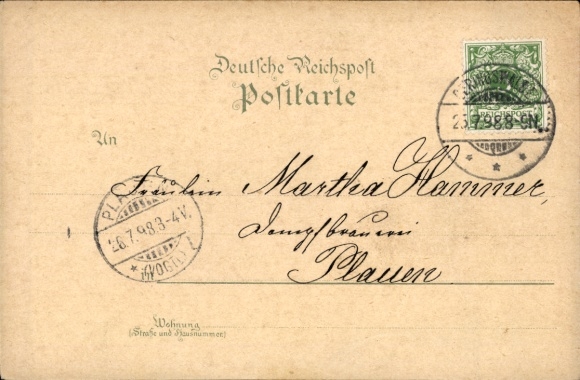 Deutsche Reichspost
Postkarte
25.7.98.8-9N.
An
Fräulein Martha Hammer,
Dampfbrauerei
Plauen
PLAUEN
26.7.98.3-4V.
(VOGTL)
Wohnung
(Straße und Hausnummer)